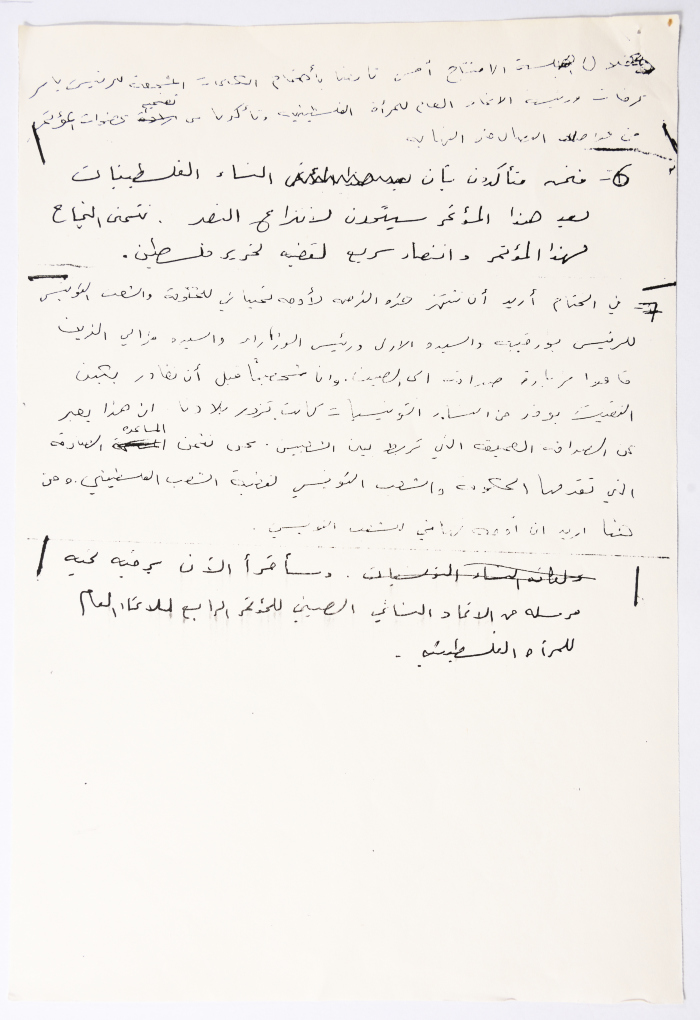 خلال جلسة الافتتاح أمس تابعنا بأهتمام الكلمات المشجعة للرئيس ياسر
عرفات ورئيسة الاتحاد العام للمرأة الفلسطينية وتأكدنا من تصميم عضوات المؤتمر
من مواصلة النضال حتى النهاية
6- فنحن متأكدون بأن النساء الفلسطينيات
بعد هذا المؤتمر سيتحدون لانتزاع النصر . نتمنى النجاح
لهذا المؤتمر وانتصار سريع لقضية تحرير فلسطين .
7- في الختام أريد أن أنتهز هذه الفرصة لأوجه تحياتي للحكومة والشعب التونسي
للرئيس بورقيبة والسيدة الاولى ورئيس الوزراء والسيدة مزالي الذين
قاموا بزيارة صداقة الى الصين . وانا شخصياً قبل أن نغادر بكين
التقيت بوفد من النساء التونسيات كانت تزور بلادنا . ان هذا يعبر
عن الصداقة العميقة التي تربط بين الشعبين . نحن نثمن المساعدة الصادقة
التي تقدمها الحكومة والشعب التونسي لقضية الشعب الفلسطيني . ومن
هنا اريد ان أوجه تهاني للشعب التونسي .
ولكافة النساء التونسيات . وسأقرأ الآن برقية تحية
مرسلة من الاتحاد النسائي الصيني للمؤتمر الرابع للاتحاد العام
للمرأة الفلسطينية .